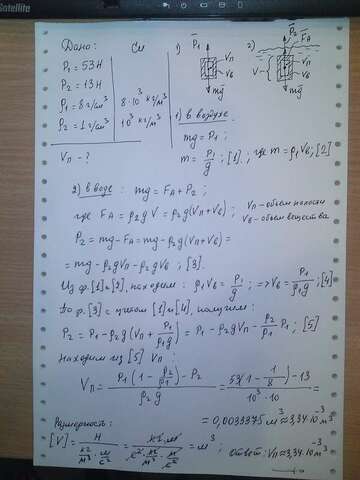 Satellite
Дано:
P₁ = 53Н
P₂ = 13Н
ρ₁ = 8 г/см³
ρ₂ = 1 г/см³
Vп - ?
Си
8·10³ кг/м³
10³ кг/м³
1) P₁
Vп
Vв
mg
2) P₂ FА
V
Vп
Vв
mg
1) в воздухе:
mg = P₁ ;
m = P₁/g ; [1], где m = ρ₁Vв; [2]
2) в воде : mg = FА + P₂ ;
где FА = ρ₂gV = ρ₂g(Vп+Vв) ; Vп - объем полости
Vв - объем вещества
P₂ = mg - FА = mg - ρ₂g(Vп+Vв) =
= mg - ρ₂gVп - ρ₂gVв ; [3].
Из ф.[1] и [2], находим : ρ₁Vв = P₁/g ; => Vв = P₁/ρ₁g ; [4]
ф. [3] с учетом [1] и [4], получим :
P₂ = P₁ - ρ₂g(Vп + P₁/ρ₁g) = P₁ - ρ₂gVп - ρ₂/ρ₁ P₁ ; [5]
Находим из [5] Vп :
Vп = (P₁(1 - ρ₂/ρ₁) - P₂)/(ρ₂g) = (53(1 - 1/8) - 13)/(10³·10) =
= 0,0033375 м³ ≈ 3,34·10⁻³ м³
Размерность:
[V] = Н/(кг/м³ · м/с²) = кг·м/(с² · кг/м³ · м/с²) = м³ ; Ответ: Vп ≈ 3,34·10⁻³ м³